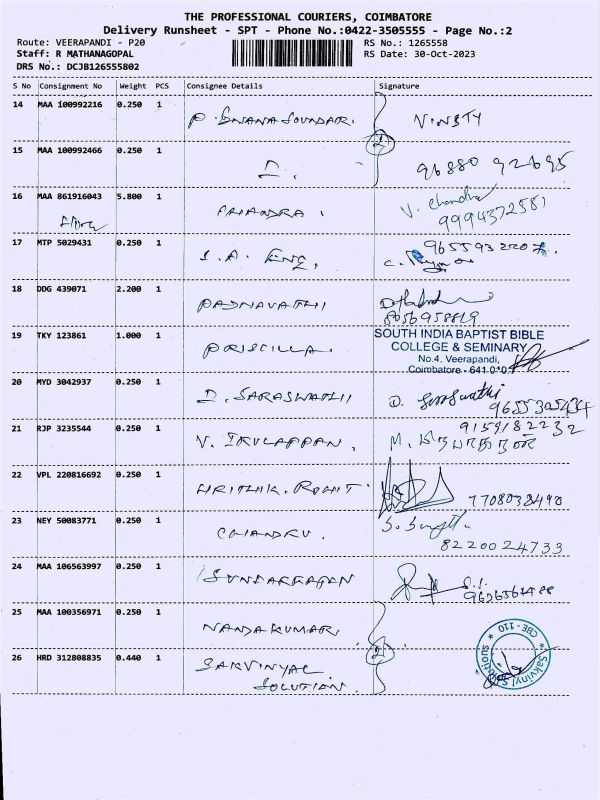 THE PROFESSIONAL COURIERS, COIMBATORE
Delivery Runsheet - SPT - Phone No.:0422-3505555 - Page No.:2
Route: VEERAPANDI - P20
RS No.: 1265558
Staff: R MATHANAGOPAL
RS Date: 30-Oct-2023
DRS No.: DCJB126555802
S No Consignment No Weight PCS Consignee Details Signature
14 MAA 100992216 0.250 1 P. GNANA SOUNDARI
15 MAA 100992466 0.250 1 96880 92695
16 MAA 861916043 5.800 1 V. Chandra
9994372581
17 MTP 5029431 0.250 1 S.A. KING.
18 DDG 439071 2.200 1 PADMAVATHI
8056958819
19 TKY 123861 1.000 1 PRISCILLA. SOUTH INDIA BAPTIST BIBLE
COLLEGE & SEMINARY
No.4, Veerapandi,
Coimbatore - 641 0
20 MYD 3042937 0.250 1 D. SARASWATHI D. Saraswathi
21 RJP 3235544 0.250 1 V. IRULAPPAN. 9159182232
22 VPL 220816692 0.250 1 HRITHIK. ROHIT 7708038490
23 NEY 50083771 0.250 1 CHANDRU.
8220024733
24 MAA 106563997 0.250 1 SUNDARRAJAN
25 MAA 100356971 0.250 1 NANDAKUMAR
26 HRD 312808835 0.440 1 SAKVINYAL
SOLUTION. CBE-110